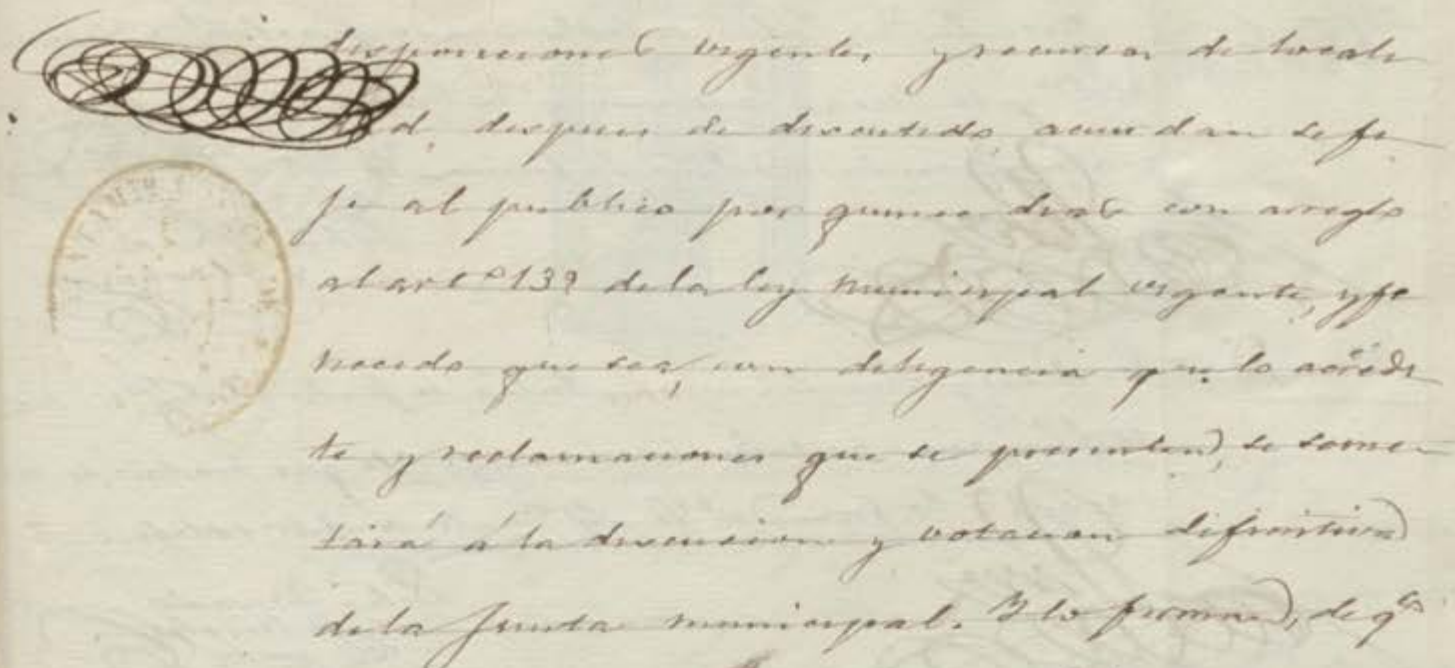 disposiciones vigentes y recursos de locali
dad, despues de discutido acuerdan se fi
je al publico por quince dias con arreglo
al artº 139 de la ley municipal vigente, y fe
necido que sea, con diligencia que lo acredi
te y reclamaciones que se presenten, se some
terá á la discusion y votacion difinitiva
de la Junta municipal. Y lo firman, de qº